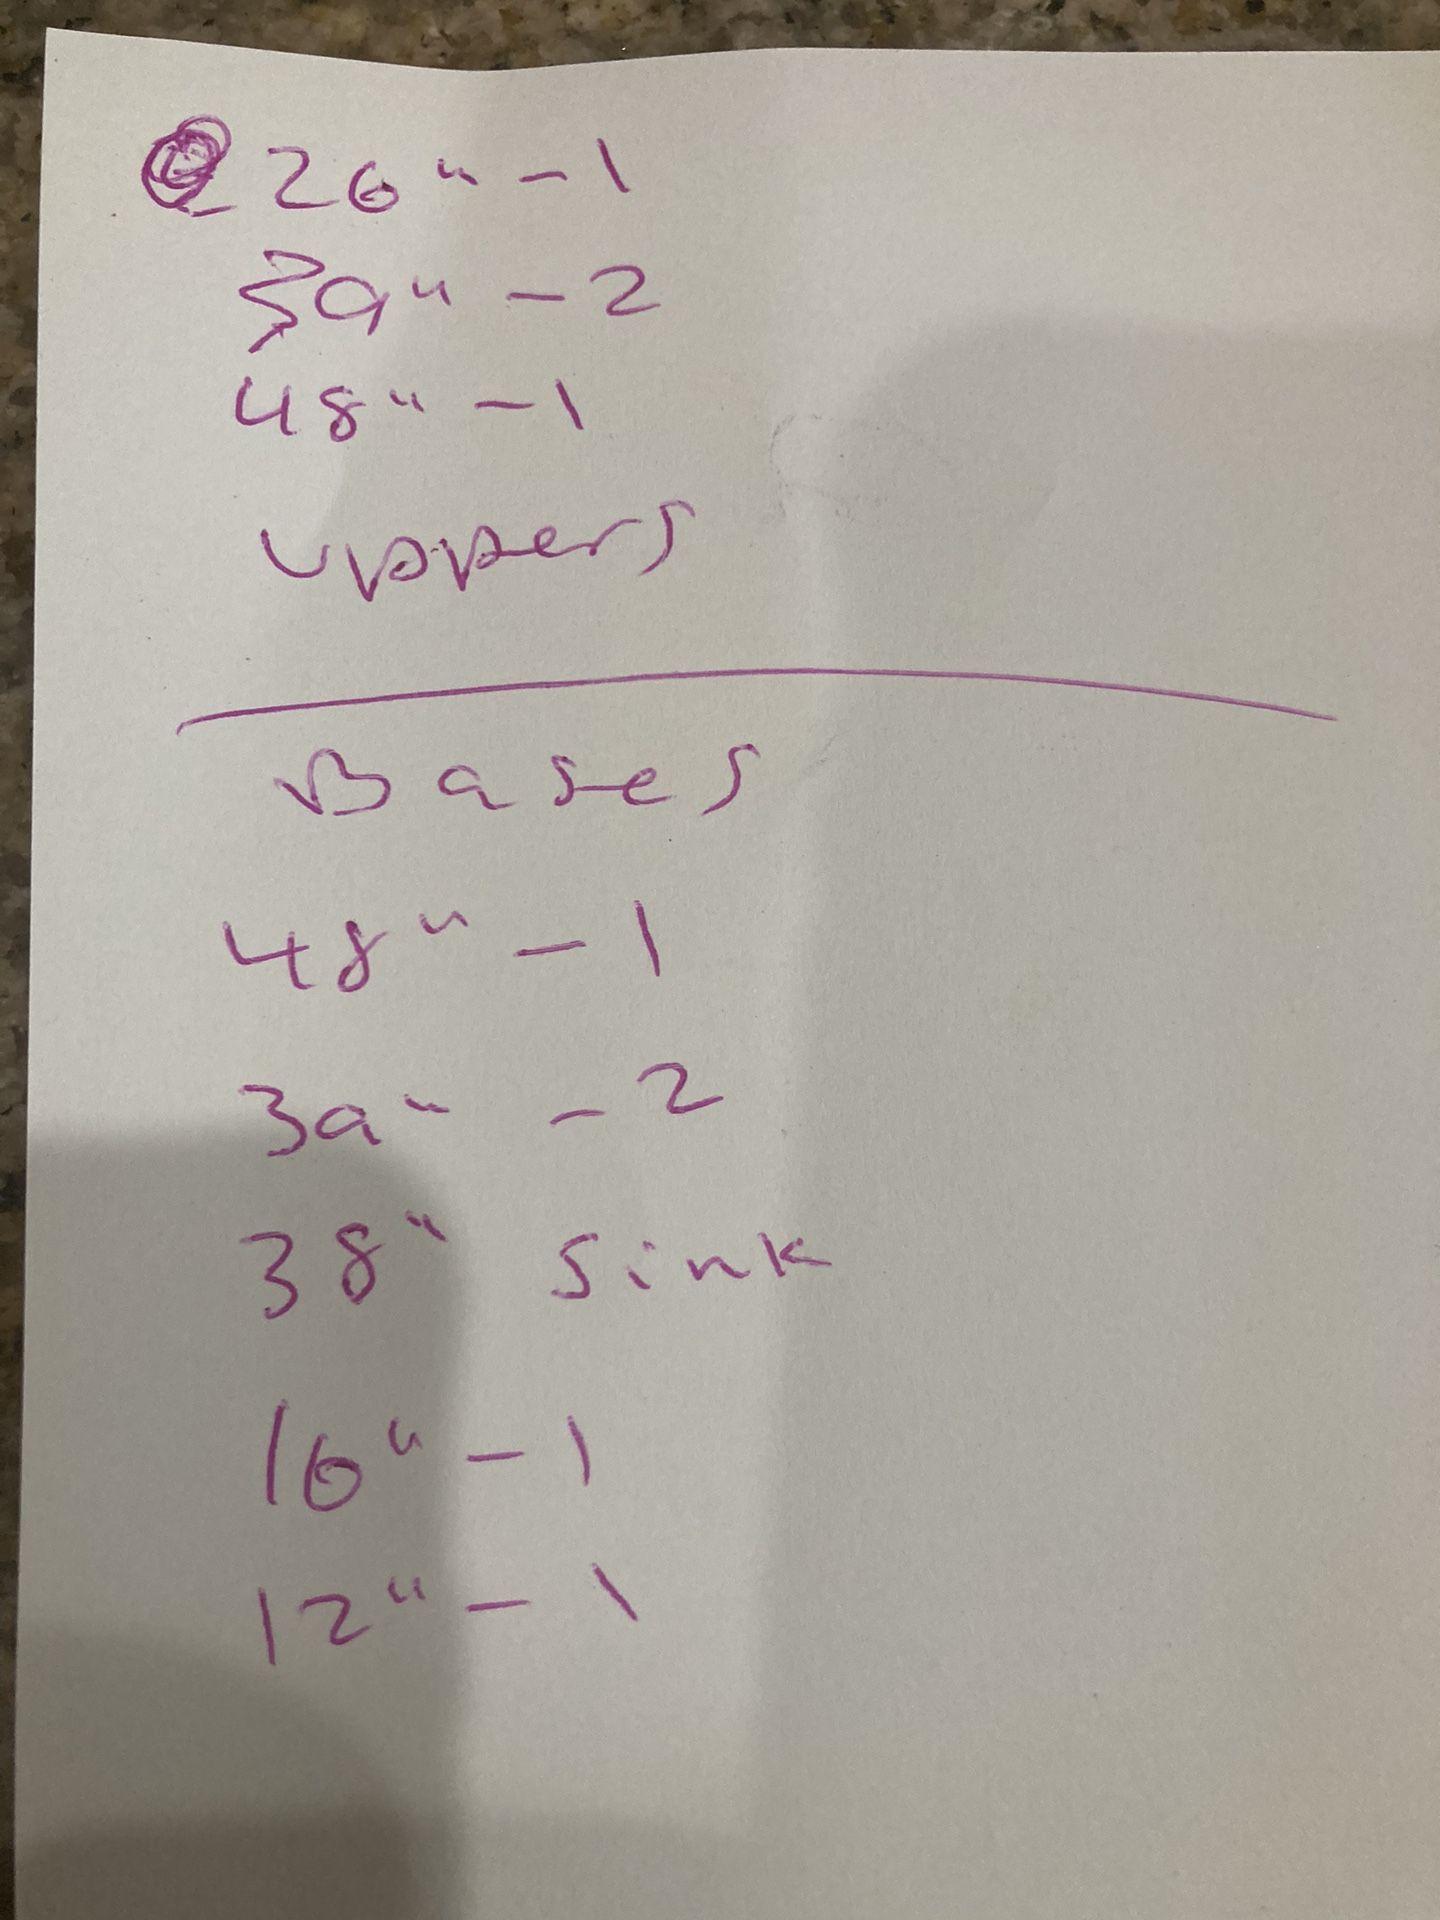 26" - 1
39" - 2
48" - 1
uppers
Bases
48" - 1
39" - 2
38" sink
16" - 1
12" - 1